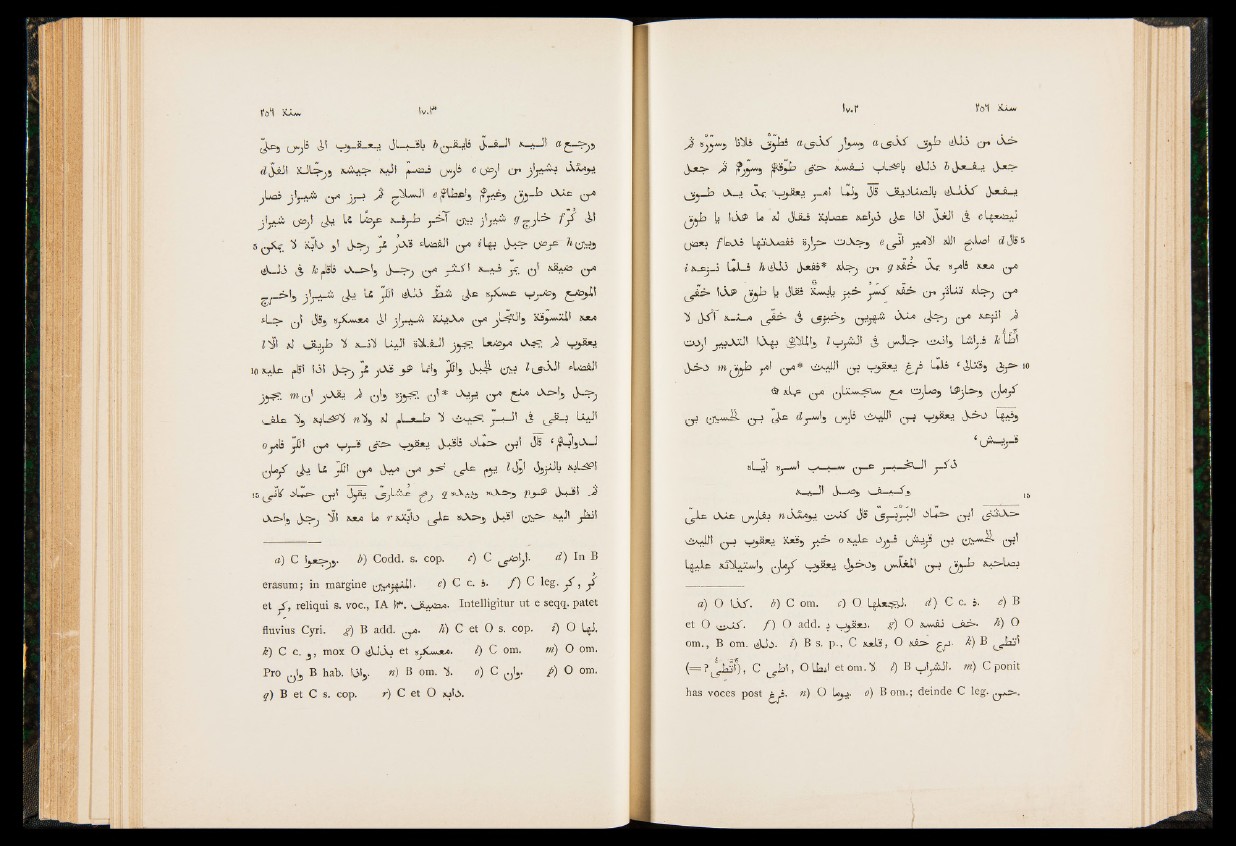 ١٧٠٢ سنة
خذ من ذلك طوق كذى a وسوار كذى a فطوّق فلانا وسوّره ثم
جعل يفعل b ذلك باصحاب نفسه حتى طوّقهم وسوّرهم ثم جعل
يفعل كذلك بالصناديق قال ولما امر يعقوب بمدّ يد طوق
ليضعها c فى الغلّ اذا على ذراعه عصابة فقال له ما هذا يا طوق
5 قال d اصلح الله الامير انى e وجدت حرارة ففصدتها فدعا f بعض
من معه فامره بمدّ خفّه g من رجله *ففعل ذلك h فلما نزعه i
من رجله تناثر من خفّه كسر خبز يابسة فقال يا طوق هذا خفّى
لم انزعه من رجلى منذ شهرين وخبزى فى خفّى منه آكل لا
أطأ k فراشا وانت جالس فى الشرب l والملاهى بهذا التدبير اردت
10 حربى وقتالى، فلما فرغ يعقوب بن الليث *من امر طوق m دخل
كرمان وحازها وصارت مع سجستان من عمله ۞
وفيها دخل يعقوب بن الليث فارس واسر d علىّ بن الحسين بن
قريش،
ذكر الخبر عن سبب اسره ايّاه
15 وكيف وصل اليه
حدّثنى ابن حمّاد البَرْبَرىّ قال كنت يومئذ n بفارس عند علىّ
ابن الحسين بن قريش فورد عليه o خبر وقعة يعقوب بن الليث
بصاحبه طوق بن المغلّس ودخول يعقوب كرمان واستيلائه عليها
a) O كذا. b) C om. c) O ليجعلها. d) C c. ف. e) B
et O كنت. f) O add. يعقوب ب. g) O خف نفسه. h) O
om., B om. ذلك. i) B s. p., C قلعه, O نزع خفه. k) B
l) B بالشراب. m) C ponit
has voces post فرغ. n) O يوما. o) B om.; deinde C leg.
١٧٠٣ سنة
ورجع a اليه الفلّ فايقن b باقبال يعقوب الى فارس وعلىّ
يومئذ بشيراز من ارض c فارس فضمّ اليه جيشه ورجّالة الفلّ d
من عند طوق وغيرهم واعطاهم e السلاح ثم برز من شيراز فصار
الى كُرّ f خارج g شيراز بين آخر طرفه عرضا مما يلى ارض شيراز
5 وبين h عرض جبل بها i من الفضاء قدر ممرّ رجل او دابّة لا يمكن
من ضيقه ان يمرّ فيه اكثر من رجل واحد فاقام k فى ذلك
الموضع وضرب عسكره على شطّ ذلك الكرّ مما يلى شيراز واخرج
معه المتسوّقة والتجّار من مدينة شيراز الى معسكره وقال ان جاء
يعقوب لم يجد موضعا يجوز الفلاة الينا لانه لا طريق له الّا l
10 الفضاء الذى l بين الجبل والكرّ وانما هو قدر ممرّ رجل اذا اقام عليه
رجل واحد منع من يريد *ان يجوزه وان لم يقدر ان m يجوز
الينا بقى فى البرّ بحيث لا طعام له ولا n لاصحابه ولا علف
لدوابّهم، قال ابن حمّاد فاقبل يعقوب حتى قرب من الكرّ فامر o
اصحابه بالنزول اوّل l يوم على نحو من ميل من الكرّ مما يلى كرمان
15 ثم اقبل هو p وحده وبيده q رمح عُشارىّ يقول ابن حمّاد كأنّى
انظر اليه حين اقبل وحده على دابّته r ما معه الّا رجل واحد
a) C ورجعوا. b) Codd. s. cop. c) C اراضى. d) In B
erasum; in margine المنهزمين. e) C c. ف. f) C leg. كر, كر
et كر, reliqui s. voc., IA مضيف. Intelligitur ut e seqq. patet
fluvius Cyri. g) B add. من. h) C et O s. cop. i) O لها.
k) C c. و, mox O بذلك et معسكره. l) C om. m) O om.
Pro وان B hab. واذا. n) B om. لا. o) C وان. p) O om.
q) B et C s. cop. r) C et O دابه.